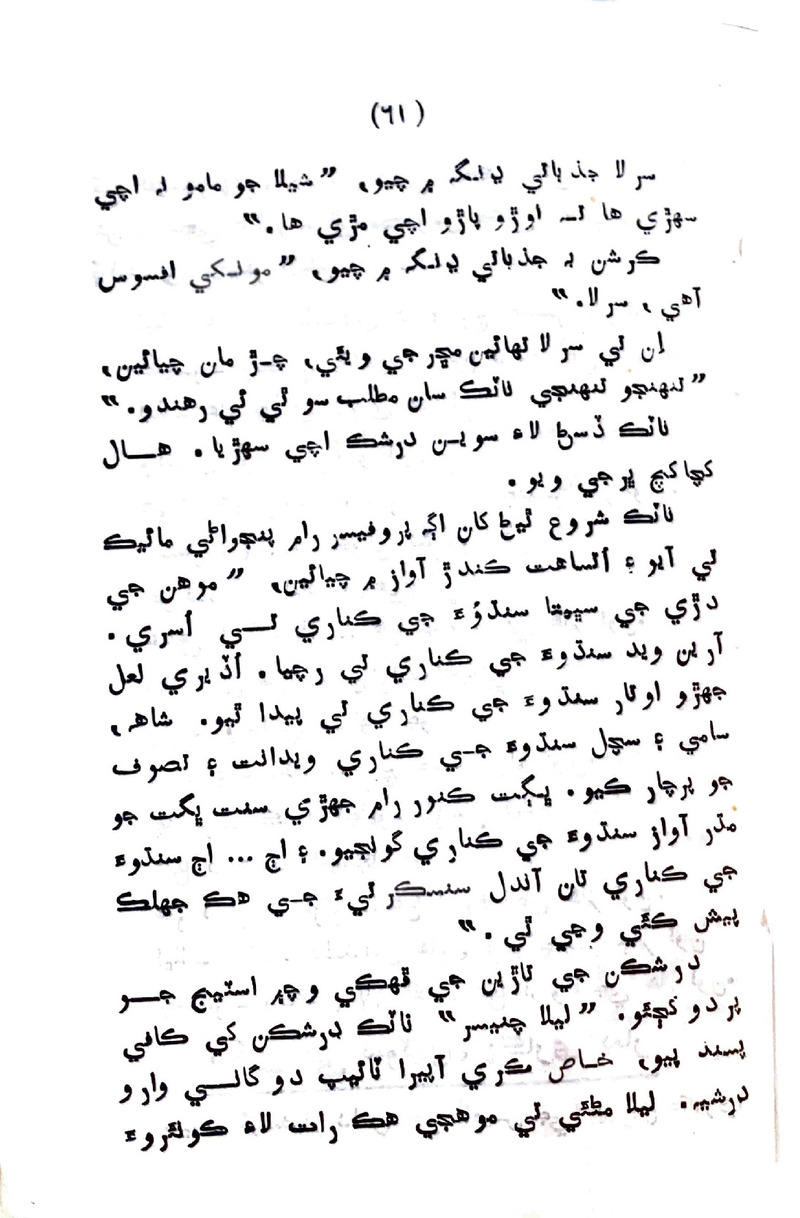 (٦١)
سرلا جذباتي ڍنگہ ۾ چيو، ”شيلا جو مامو نہ اچي
سهڙي ها تــ اوڙو پاڙو اچي مڙي ها.“
ڪرشن بہ جذباتي ڍنگہ ۾ چيو، ”مونکي افسوس
آهي، سرلا.“
اِن تي سرلا تهائين مڇرجي ويئي، چــڙ مان چيائين،
”تنهنجو تنهنجي ناٽڪ سان مطلب سو ٿي ئي رهندو.“
ناٽڪ ڏسڻ لاءِ سوين درشڪ اچي سهڙيا. هــال
کچاکچ ڀرجي ويو.
ناٽڪ شروع ٿيڻ کان اڳہ پروفيسر رام پنجواڻي مائيڪ
تي آيو ۽ اُتساهت ڪندڙ آواز ۾ چيائين، ”موهن جي
دڙي جي سڀيتا سنڌوُءَ جي ڪناري تــي اُسري.
آرين ويد سنڌوءَ جي ڪناري تي رچيا. اُڏيري لعل
جهڙو اوتار سنڌوءَ جي ڪناري تي پيدا ٿيو. شاهہ،
سامي ۽ سچل سنڌوءَ جــي ڪناري ويدانت ۽ تصوف
جو پرچار ڪيو. ڀڳت ڪنور رام جهڙي سنت ڀڳت جو
مڌر آواز سنڌوءَ جي ڪناري گونجيو. ۽ اڄ ... اڄ سنڌوءَ
جي ڪناري تان آندل سنسڪرتيءَ جــي هڪ جهلڪ
پيش ڪئي وڃي ٿي.“
درشڪن جي تاڙين جي ٺهڪي وچ۾ اسٽيج جــو
پردو کڄئو. ”ليلا چنيسر“ ناٽڪ درشڪن کي ڪافي
پسند پيو، خاص ڪري آپيرا ٽائيپ دو گانــي وارو
درشيہ. ليلا مڻئي تي موهجي هڪ رات لاءِ ڪونئروءَ